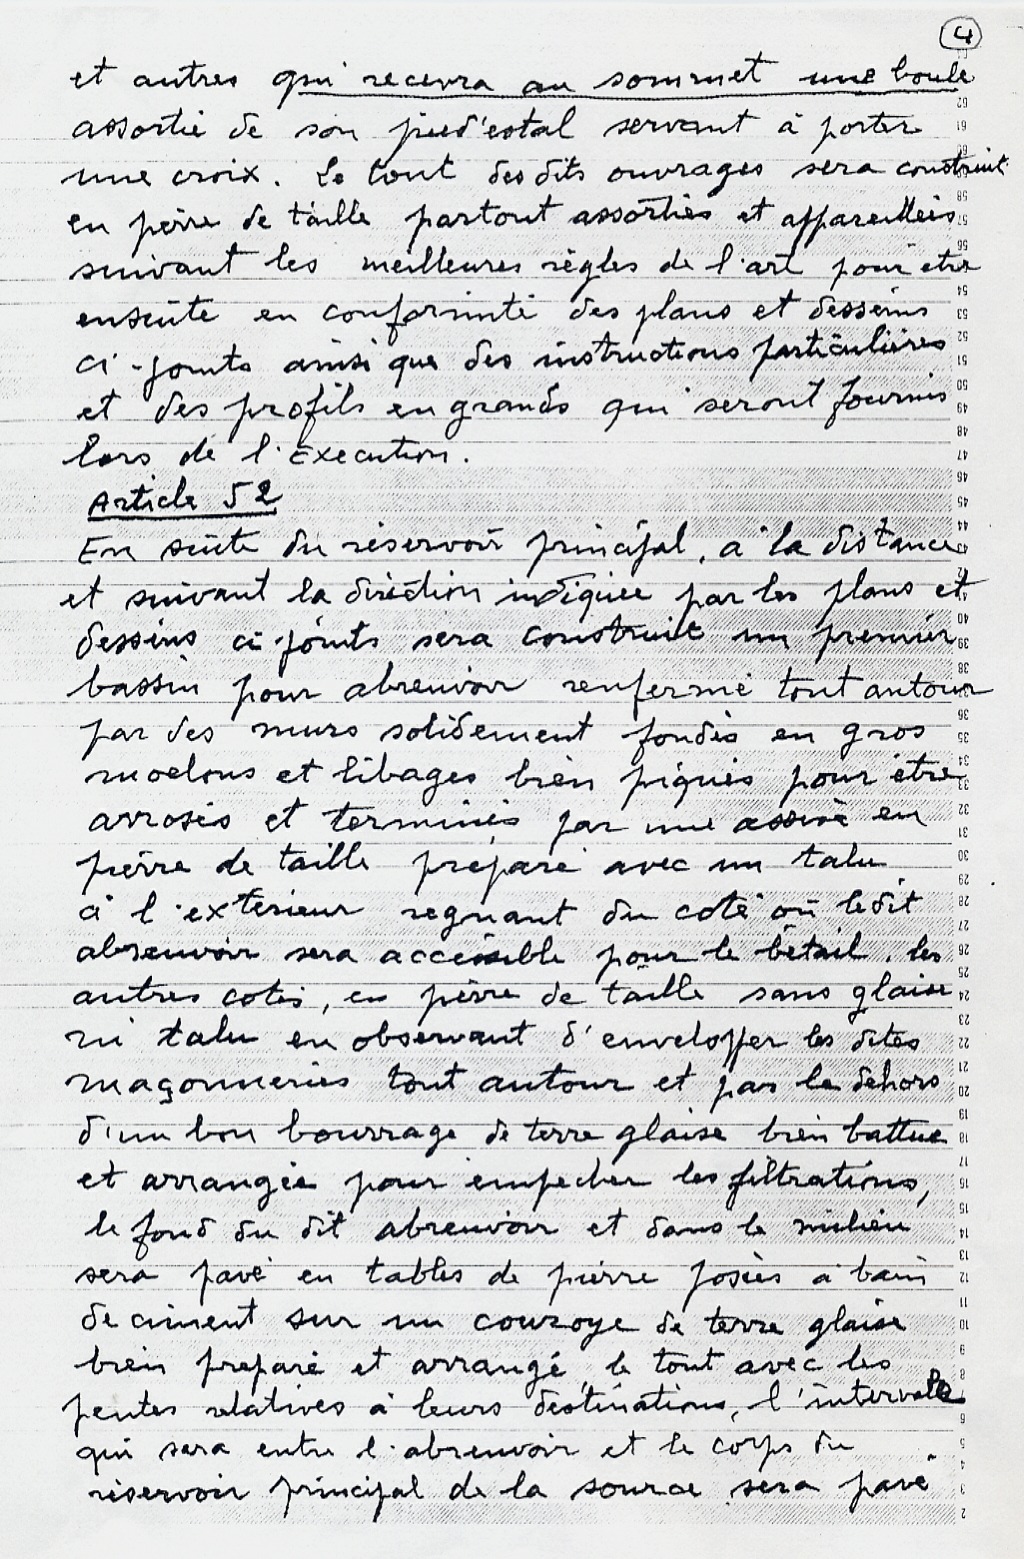 4
et autres qui recevra au sommet une boule
assortie de son pied'estal servant à porter
une croix. Le tout des dits ouvrages sera construit
en pièrre de taille partout assorties et appareillées
suivant les meilleures règles de l'art pour etre
ensuite en conformité des plans et desseins
ci-joints ainsi que des instructions particulières
et des profils en grands qui seront fournis
lors de l'Execution.
Article 52
En suite du réservoir principal, à la distance
et suivant la diréction indiquée par les plans et
dessins ci-joints sera construit un premier
bassin pour abreuvoir renfermé tout autour
par des murs solidement fondés en gros
moelons et libages bien piqués pour être
arrosés et terminés par une assise en
pièrre de taille préparé avec un talu
à l'exterieur regnant du coté où le dit
abreuvoir sera accessible pour le bétail. les
autres cotés, en pièrre de taille sans glaise
ni talu en observant d'envelopper les dites
maçonneries tout autour et par le dehors
d'un bon bourrage de terre glaise bien battue
et arrangée pour empecher les filtrations,
le fond du dit abreuvoir et dans le milieu
sera pavé en tables de pierre posées à bain
de ciment sur un couroye de terre glaise
bien preparé et arrangé, le tout avec les
pentes relatives à leurs destinations, l'intervalle
qui sera entre l'abreuvoir et le corps du
réservoir principal de la source sera pavé